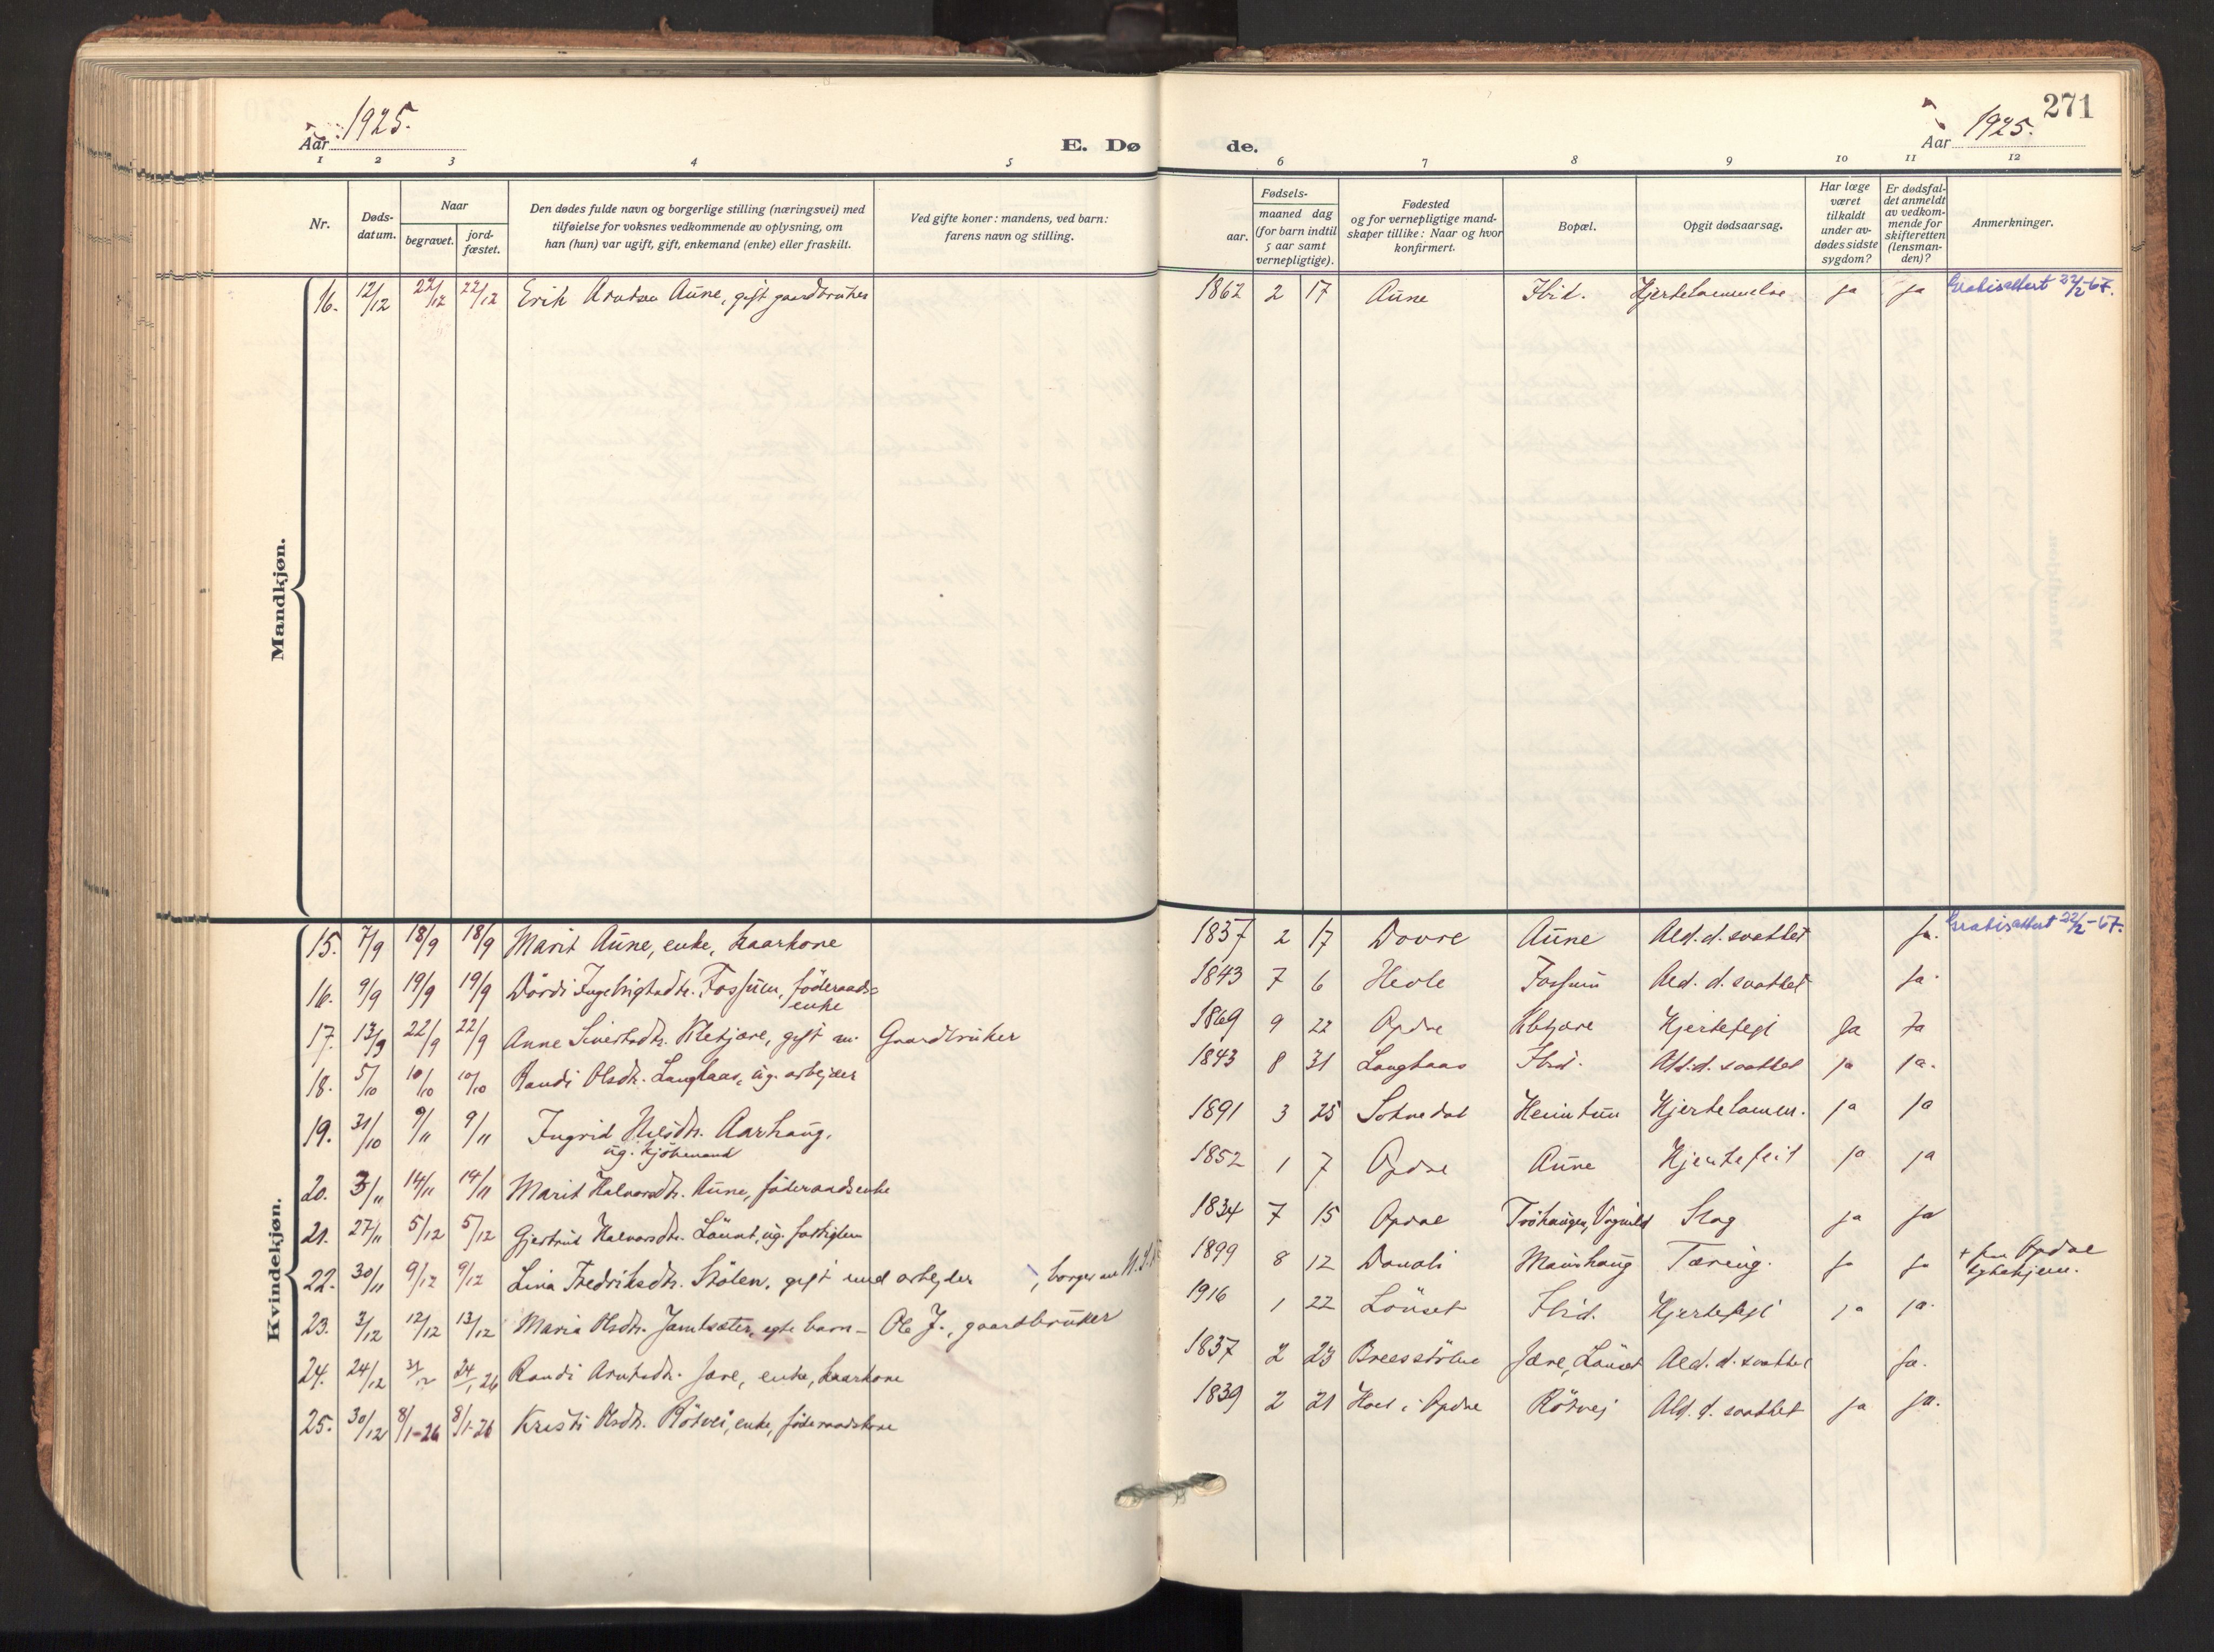 Aar 1925.
E. Døde.
Aar 1925.
271
1 2 3 4 5 6 7 8 9 10 11 12
Nr.
Døds-datum.
Naar
begravet.
jord-fæstet.
Den dødes fulde navn og borgerlige stilling (næringsvei) med
tilføielse for voksnes vedkommende av oplysning, om
han (hun) var ugift, gift, enkemand (enke) eller fraskilt.
Ved gifte koner: mandens, ved barn:
farens navn og stilling.
Fødsels-
aar.
maaned dag
(for barn indtil
5 aar samt
vernepligtige).
Fødested
og for vernepligtige mand-
skaper tillike: Naar og hvor
konfirmert.
Bopæl.
Opgit dødsaarsag.
Har læge
været
tilkaldt
under av-
dødes sidste
sygdom?
Er dødsfal-
det anmeldt
av vedkom-
mende for
skifteretten
(lensman-
den)?
Anmerkninger.
Mandkjøn.
16. 12/12 22/12 22/12 Erik Arntsen Aune, gift gaardbruker 1862 2 17 Aune Ibid. Hjertelammelse ja ja Gratisattest 22/2-67.
Kvindekjøn.
15. 7/9 18/9 18/9 Marit Aune, enke, kaarkone 1837 2 17 Dovre Aune Ald. d. svakhet ja. Gratisattest 22/2-67.
16. 9/9 19/9 19/9 Dördi Ingebrigtsdtr. Fossum, föderaads=
enke 1843 7 6 Hevle Fossum Ald. d. svakhet ja.
17. 13/9 22/9 22/9 Anne Sivertsdtr. Kletjare, gift m. Gaardbruker 1869 9 22 Opdal Kletjare Hjertefeil Ja Ja
18. 5/10 10/10 10/10 Randi Olsdtr. Langhaas, ug. arbejder 1843 8 31 Langhaas Ibid. Ald. d. svakhet ja ja.
19. 31/10 9/11 9/11 Ingrid Nilsdtr. Aarhaug,
ug. kjöbmand 1891 3 25 Soknedal Heimtun Hjertelamm. ja ja
20. 3/11 14/11 14/11 Marit Halvorsdtr. Aune, föderaadsenke 1852 1 7 Opdal Aune Hjertefeil ja ja
21. 27/11 5/12 5/12 Gjertrud Halvorsdtr. Lönset, ug. fattiglem 1834 7 15 Opdal Vognild Slag ja ja
22. 30/11 9/12 9/12 Lina Fredriksdtr. Stölen, gift med arbejder , borger av 1899 8 12 Mainhaug Tæring. ja ja Opdal
sykehjem.
23. 3/12 12/12 13/12 Maria Olsdtr. Jamtsæter, egte barn - Ole J., gaardbruker 1916 1 22 Lönset Ibid. Hjertefeil ja ja.
24. 24/12 31/12 24/1 26 Randi Arntsdtr. Jare, enke, kaarkone 1837 2 23 Jare, Lönset Ald. d. svakhet ja.
25. 30/12 8/1-26 8/1-26 Kristi Olsdtr. Rötvei, enke, föderaadskone 1839 2 21 Hoel i Opdal Rötvej Ald. d. svakhet ja ja.